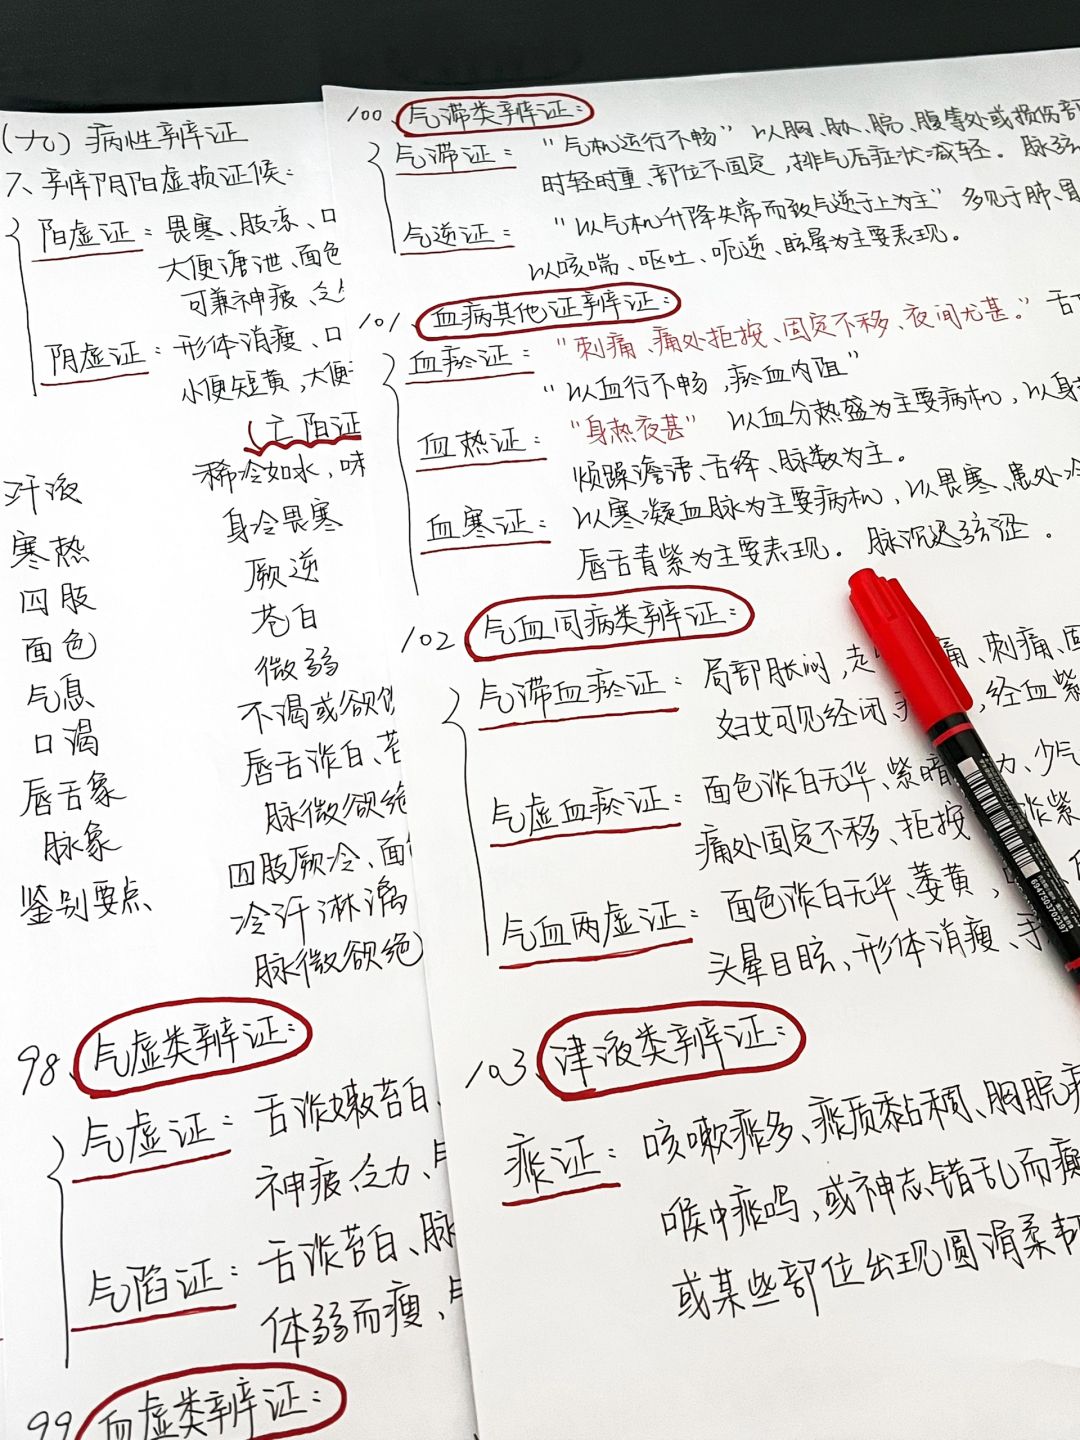 (九) 病性辨证
辨阴阳虚损证候:
阳虚证: 畏寒、肢凉、口
大便溏泄、面色
可兼神疲、乏
阴虚证: 形体消瘦、口
小便短黄,大便
亡阳证
汗液 稀冷如水,味
寒热 身冷畏寒
四肢 厥逆
面色 苍白
气息 微弱
口渴 不渴或欲
唇舌象 唇舌淡白、苔
脉象 脉微欲绝
鉴别要点 四肢厥冷、面
冷汗淋漓
脉微欲绝
98、气虚类辨证:
气虚证: 舌淡嫩苔白、
神疲乏力、
气陷证: 舌淡苔白、脉
体弱而瘦、
99 血虚类辨证:
100、气滞类辨证:
气滞证: “气机运行不畅” 以胸、胁、脘、腹等处或损伤部
时轻时重、部位不固定,排气后症状减轻。脉弦
气逆证: “以气机升降失常而致气逆于上为主” 多见于肺、胃
以咳喘、呕吐、呃逆、眩晕为主要表现。
101、血病其他证辨证:
血瘀证: “刺痛、痛处拒按、固定不移、夜间尤甚。” 舌
“以血行不畅,瘀血内阻”
血热证: “身热夜甚” 以血分热盛为主要病机,以身
烦躁谵语、舌绛、脉数为主。
血寒证: 以寒凝血脉为主要病机,以畏寒、患处冷
唇舌青紫为主要表现。脉沉迟弦涩。
102、气血同病类辨证:
气滞血瘀证: 局部胀闷,走 痛、刺痛、固
妇女可见经闭、 ,经血紫
气虚血瘀证: 面色淡白无华、紫暗 力、少气
痛处固定不移、拒按 淡紫
气血两虚证: 面色淡白无华、萎黄,
头晕目眩、形体消瘦、手
103、津液类辨证:
痰证: 咳嗽痰多、痰质黏稠、胸脘
喉中痰鸣,或神志错乱而癫
或某些部位出现圆滑柔韧
6945503702397